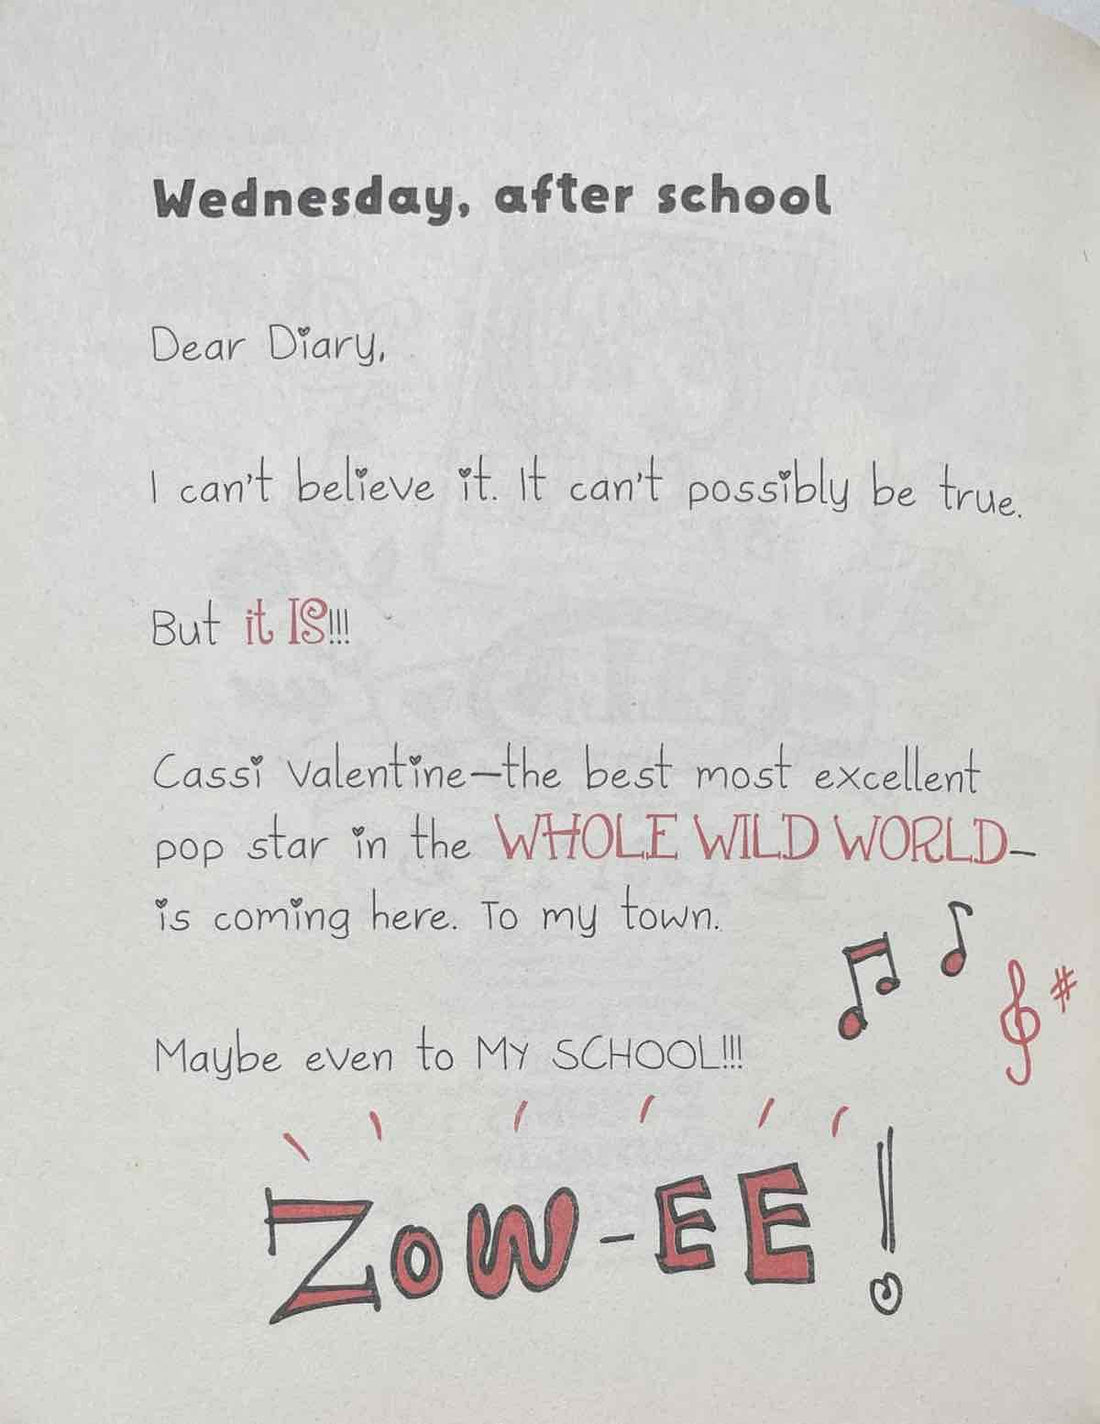 Wednesday, after school
Dear Diary,
I can't believe it. It can't possibly be true.
But it IS!!!
Cassi Valentine—the best most excellent
pop star in the WHOLE WILD WORLD—
is coming here. To my town.
Maybe even to MY SCHOOL!!!
ZOW-EE!